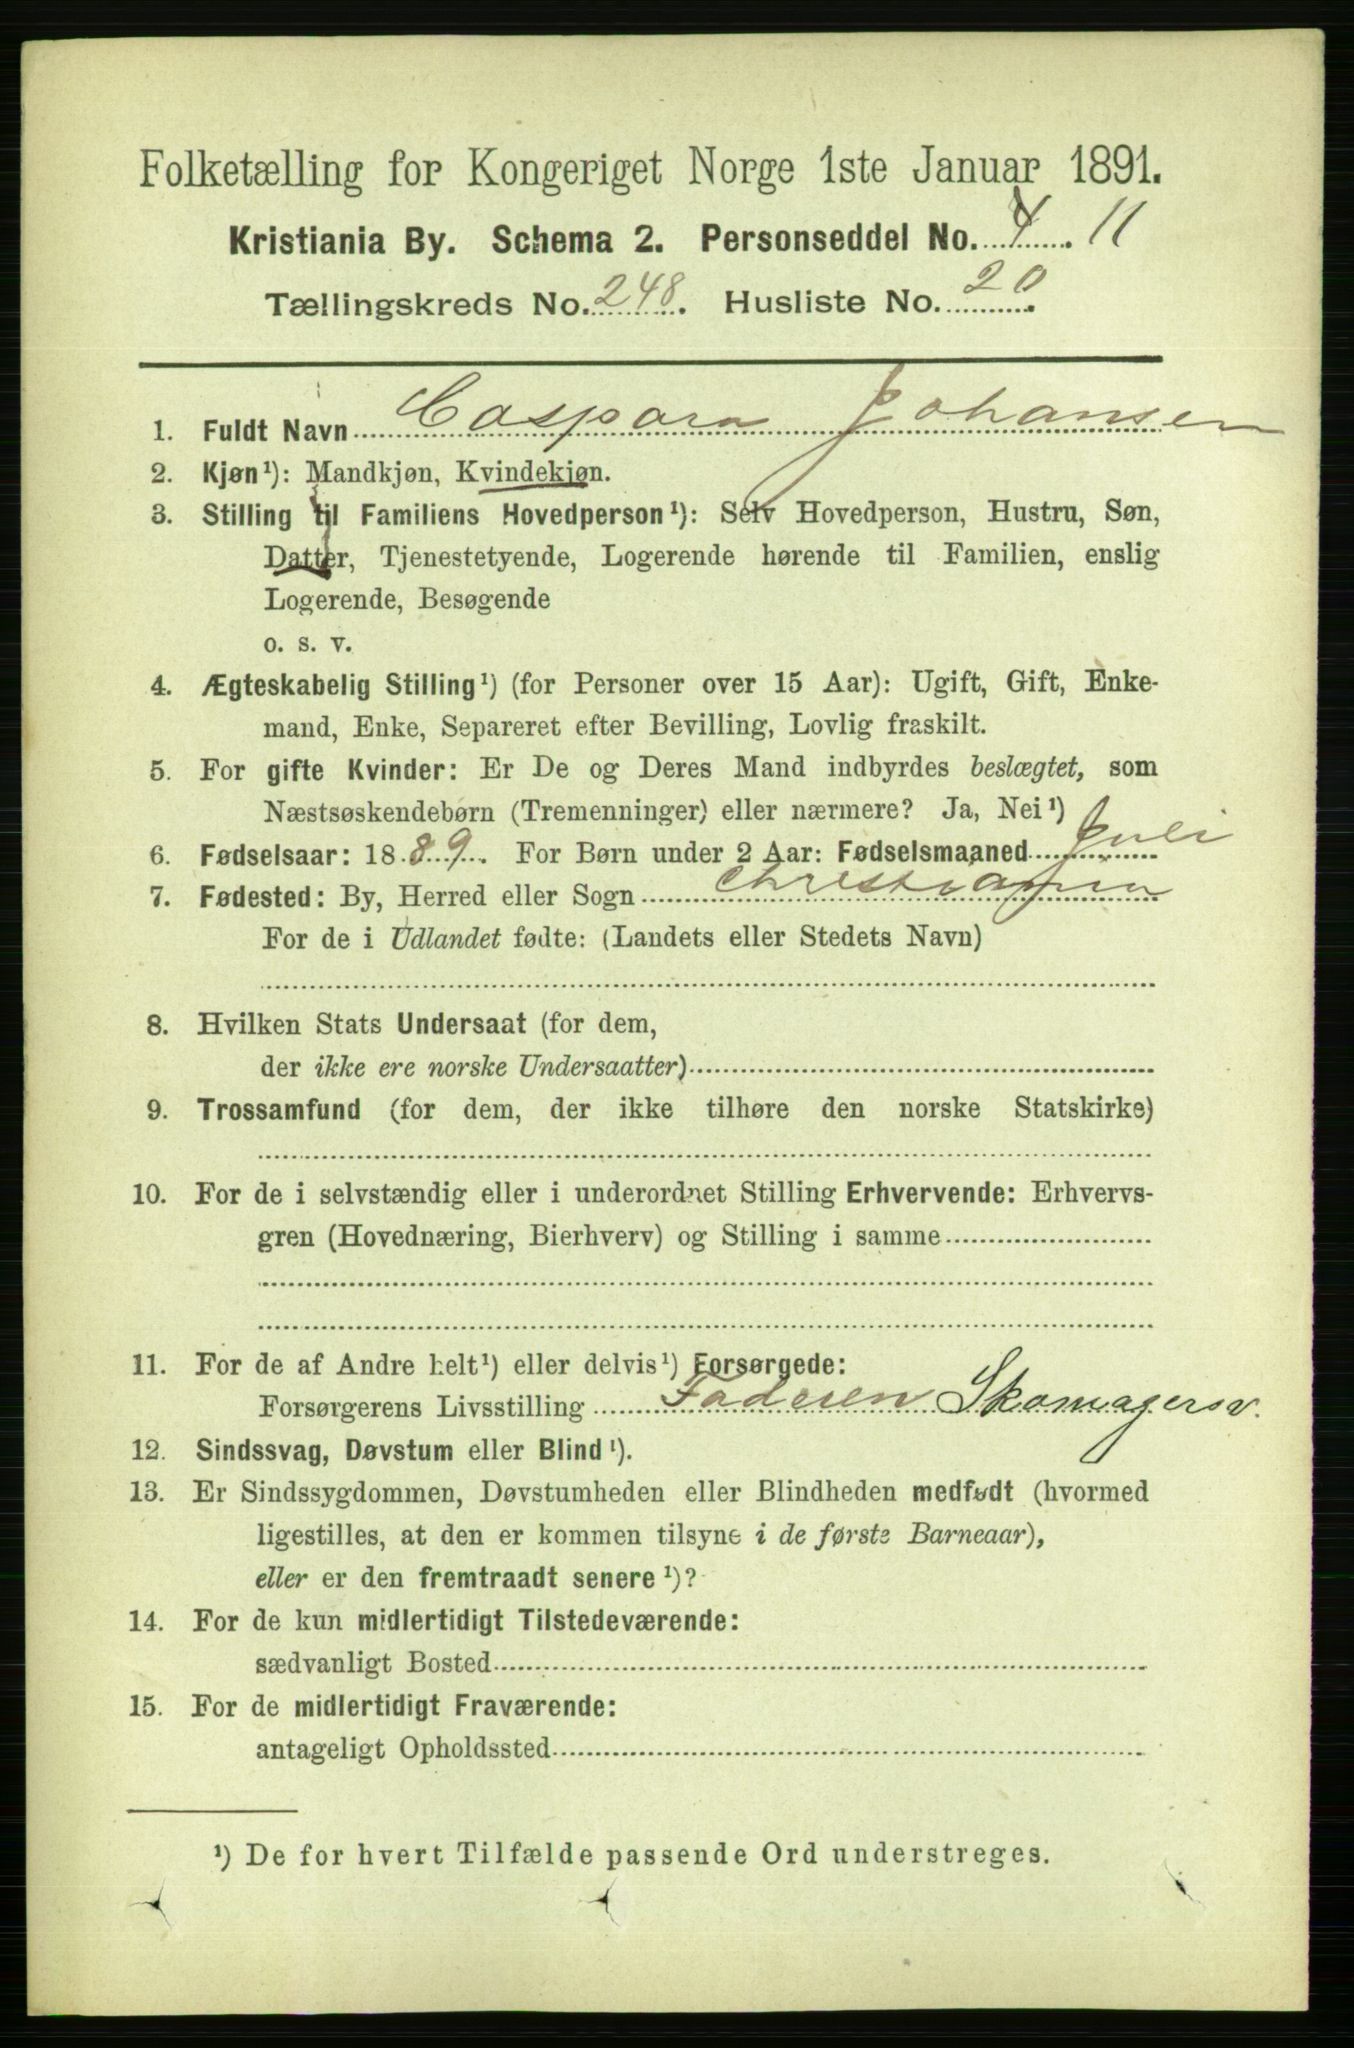 Folketælling for Kongeriget Norge 1ste Januar 1891.
Kristiania By. Schema 2. Personseddel No. 4 11
Tællingskreds No. 248. Husliste No. 20.
1. Fuldt Navn Caspara Johansen
2. Kjøn¹): Mandkjøn, Kvindekjøn.
3. Stilling til Familiens Hovedperson¹): Selv Hovedperson, Hustru, Søn,
Datter, Tjenestetyende, Logerende hørende til Familien, enslig
Logerende, Besøgende
o. s. v.
4. Ægteskabelig Stilling¹) (for Personer over 15 Aar): Ugift, Gift, Enke-
mand, Enke, Separeret efter Bevilling, Lovlig fraskilt.
5. For gifte Kvinder: Er De og Deres Mand indbyrdes beslægtet, som
Næstsøskendebørn (Tremenninger) eller nærmere? Ja, Nei¹)
6. Fødselsaar: 1889. For Børn under 2 Aar: Fødselsmaaned Juli
7. Fødested: By, Herred eller Sogn Christiania
For de i Udlandet fødte: (Landets eller Stedets Navn)
8. Hvilken Stats Undersaat (for dem,
der ikke ere norske Undersaatter)
9. Trossamfund (for dem, der ikke tilhøre den norske Statskirke)
10. For de i selvstændig eller i underordnet Stilling Erhvervende: Erhvervs-
gren (Hovednæring, Bierhverv) og Stilling i samme
11. For de af Andre helt¹) eller delvis¹) Forsørgede:
Forsørgerens Livsstilling Faderen Skomagersv.
12. Sindssvag, Døvstum eller Blind¹).
13. Er Sindssygdommen, Døvstumheden eller Blindheden medfødt (hvormed
ligestilles, at den er kommen tilsyne i de første Barneaar),
eller er den fremtraadt senere¹)?
14. For de kun midlertidigt Tilstedeværende:
sædvanligt Bosted
15. For de midlertidigt Fraværende:
antageligt Opholdssted
¹) De for hvert Tilfælde passende Ord understreges.